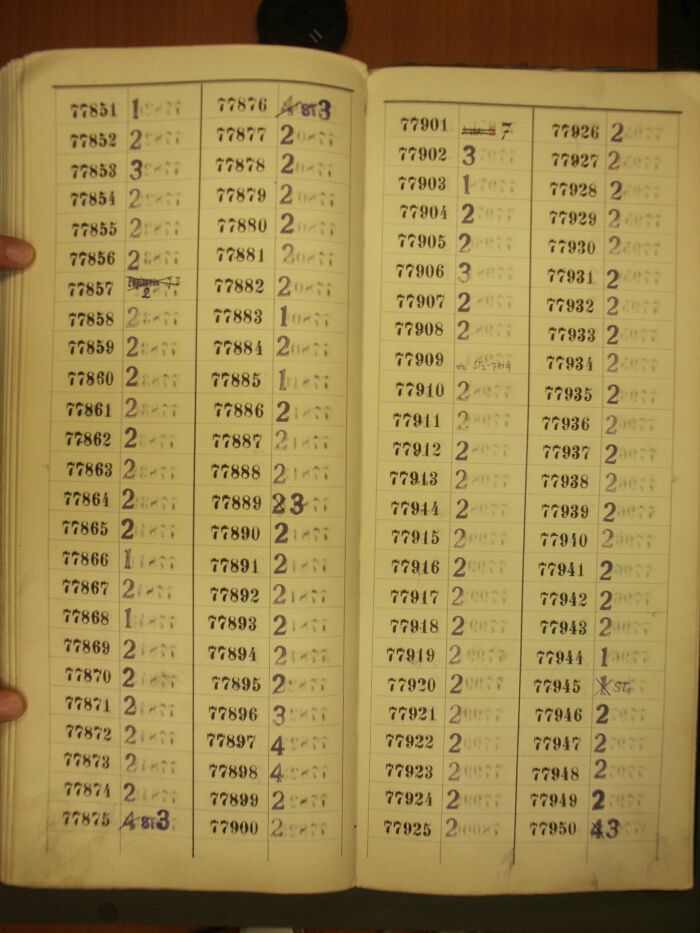 77851 1
77852 2
77853 3
77854 2
77855 2
77856 2
77857 2
77858 2
77859 2
77860 2
77861 2
77862 2
77863 2
77864 2
77865 2
77866 1
77867 2
77868 1
77869 2
77870 2
77871 2
77872 2
77873 2
77874 2
77875 4 ST 3
77876 4 ST 3
77877 2
77878 2
77879 2
77880 2
77881 2
77882 2
77883 1
77884 2
77885 1
77886 2
77887 2
77888 2
77889 2 3
77890 2
77891 2
77892 2
77893 2
77894 2
77895 2
77896 3
77897 4
77898 4
77899 2
77900 2
77901 7
77902 3
77903 1
77904 2
77905 2
77906 3
77907 2
77908 2
77909
77910 2
77911 2
77912 2
77913 2
77914 2
77915 2
77916 2
77917 2
77918 2
77919 2
77920 2
77921 2
77922 2
77923 2
77924 2
77925 2
77926 2
77927 2
77928 2
77929 2
77930 2
77931 2
77932 2
77933 2
77934 2
77935 2
77936 2
77937 2
77938 2
77939 2
77940 2
77941 2
77942 2
77943 2
77944 1
77945 1 ST,
77946 2
77947 2
77948 2
77949 2
77950 4 3